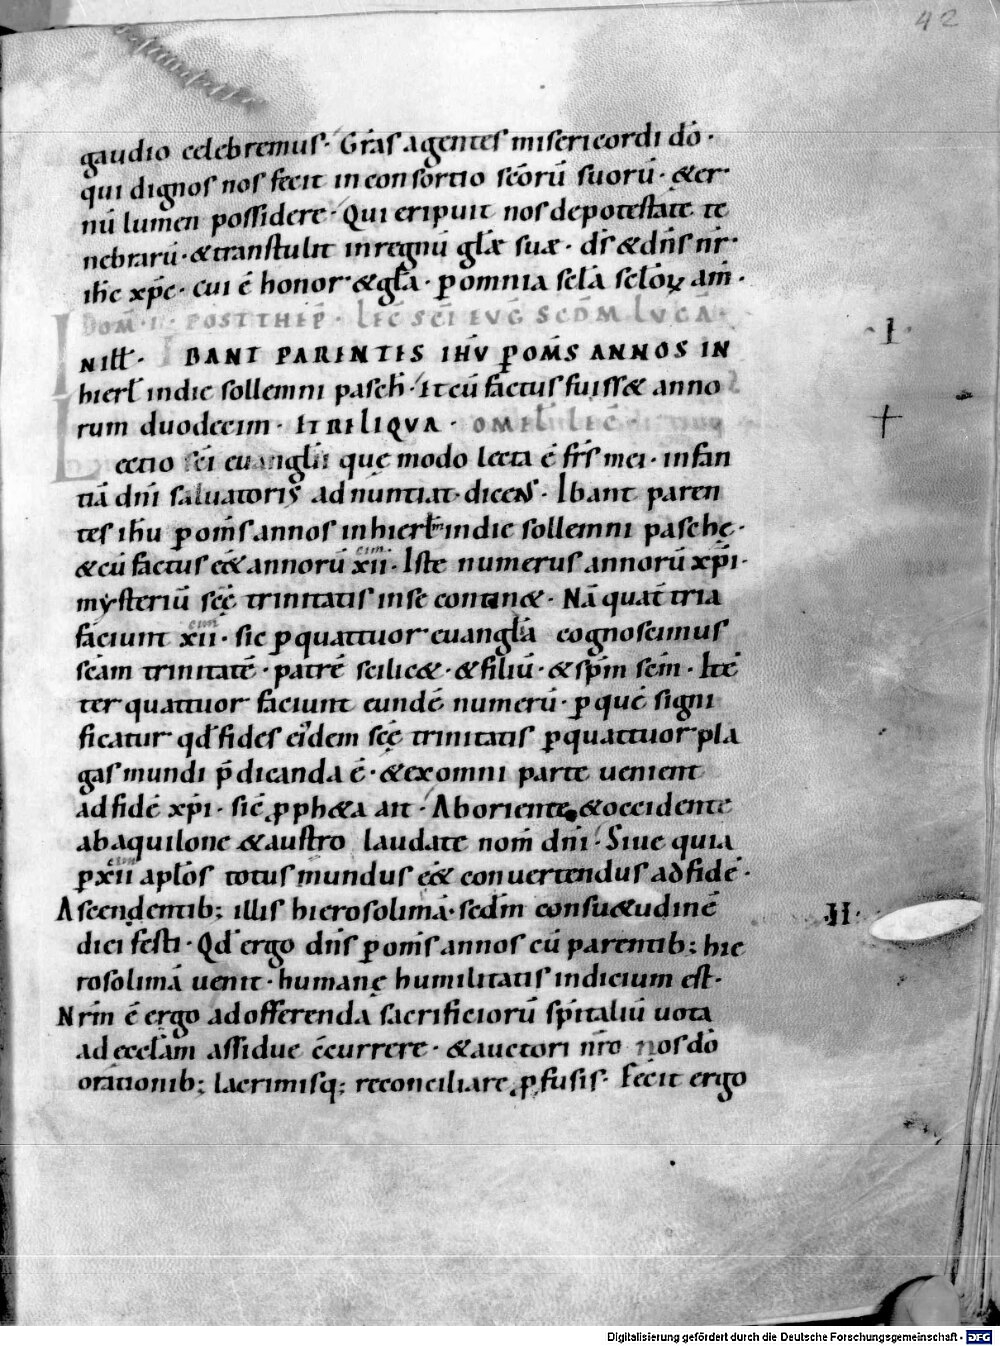 42
gaudio celebremus. Gr̄as agentes misericordi dō.
qui dignos nos fecit in consortio sc̄orū suorū. &er
nū lumen possidere. Qui eripuit nos de potestate te
nebrarū. & transtulit in regnū gl̄æ suæ. d̄s & dn̄s nr̄.
ih̄c xp̄c. cui ē honor & gl̄a. p omnia sc̄la sc̄loꝝ am̄.
DOM̄. II. POST THEP̄. LEC̄ SC̄I EVḠ SCD̄M LVCĀ.
.I.
N ill̄. IBANT PARENTES IHV P OM̄S ANNOS IN
hierl̄ in die sollemni pasch̄. Et cū factus fuiss& anno
rum duodecim. ET RELIQVA. OMEL̄
Lectio sc̄i euanglii quę modo lecta ē fr̄s mei. infan
tiā dn̄i saluatoris adnuntiat. dicens. Ibant paren
tes ih̄u p om̄s annos in hierl̄m in die sollemni paschę.
& cū factus ēē& annorū xii.cim Iste numerus annorū xp̄i.
mysteriū sc̄ę trinitatis in se contin&. Nā quat̄ tria
faciunt xii.cim sic p quattuor euangl̄a cognoscimus
sc̄am trinitatē. patrē scilic&. & filiū. & sp̄m sc̄m. Itē
ter quattuor faciunt eundē numerū. p quē signi
ficatur qd̄ fides eidem sc̄ę trinitatis p quattuor pla
gas mundi p̄dicanda ē. & ex omni parte uenient
ad fidē xp̄i. sic̄ ꝓph&a ait. Ab oriente & occidente
ab aquilone & austro laudate nom̄ dn̄i. Siue quia
p xiicim apl̄os totus mundus ēē& conuertendus ad fidē.
.II.
Ascendentib; illis hierosolimā. scd̄m consu&udinē
diei festi. Qd̄ ergo dn̄s p om̄s annos cū parentib; hie
rosolimā uenit. humanę humilitatis indicium est.
Nr̄m ē ergo ad offerenda sacrificiorū sp̄italiū uota
ad ęccl̄am assidue c̄currere. & auctori nr̄o nos dō
orationib; lacrimisq; reconciliare ꝓfusis. Fecit ergo
Digitalisierung gefördert durch die Deutsche Forschungsgemeinschaft - DFG